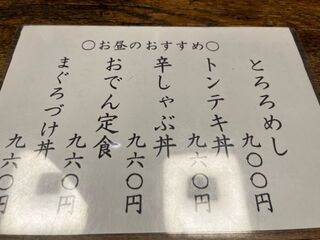 ○お昼のおすすめ○
とろろめし
九〇〇円
トンテキ丼
九六〇円
辛しゃぶ丼
九六〇円
おでん定食
九六〇円
まぐろづけ丼
九六〇円